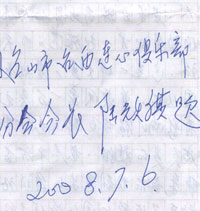 台山市台西连心俱乐部
分会会长 陈 题
2008.7.6.